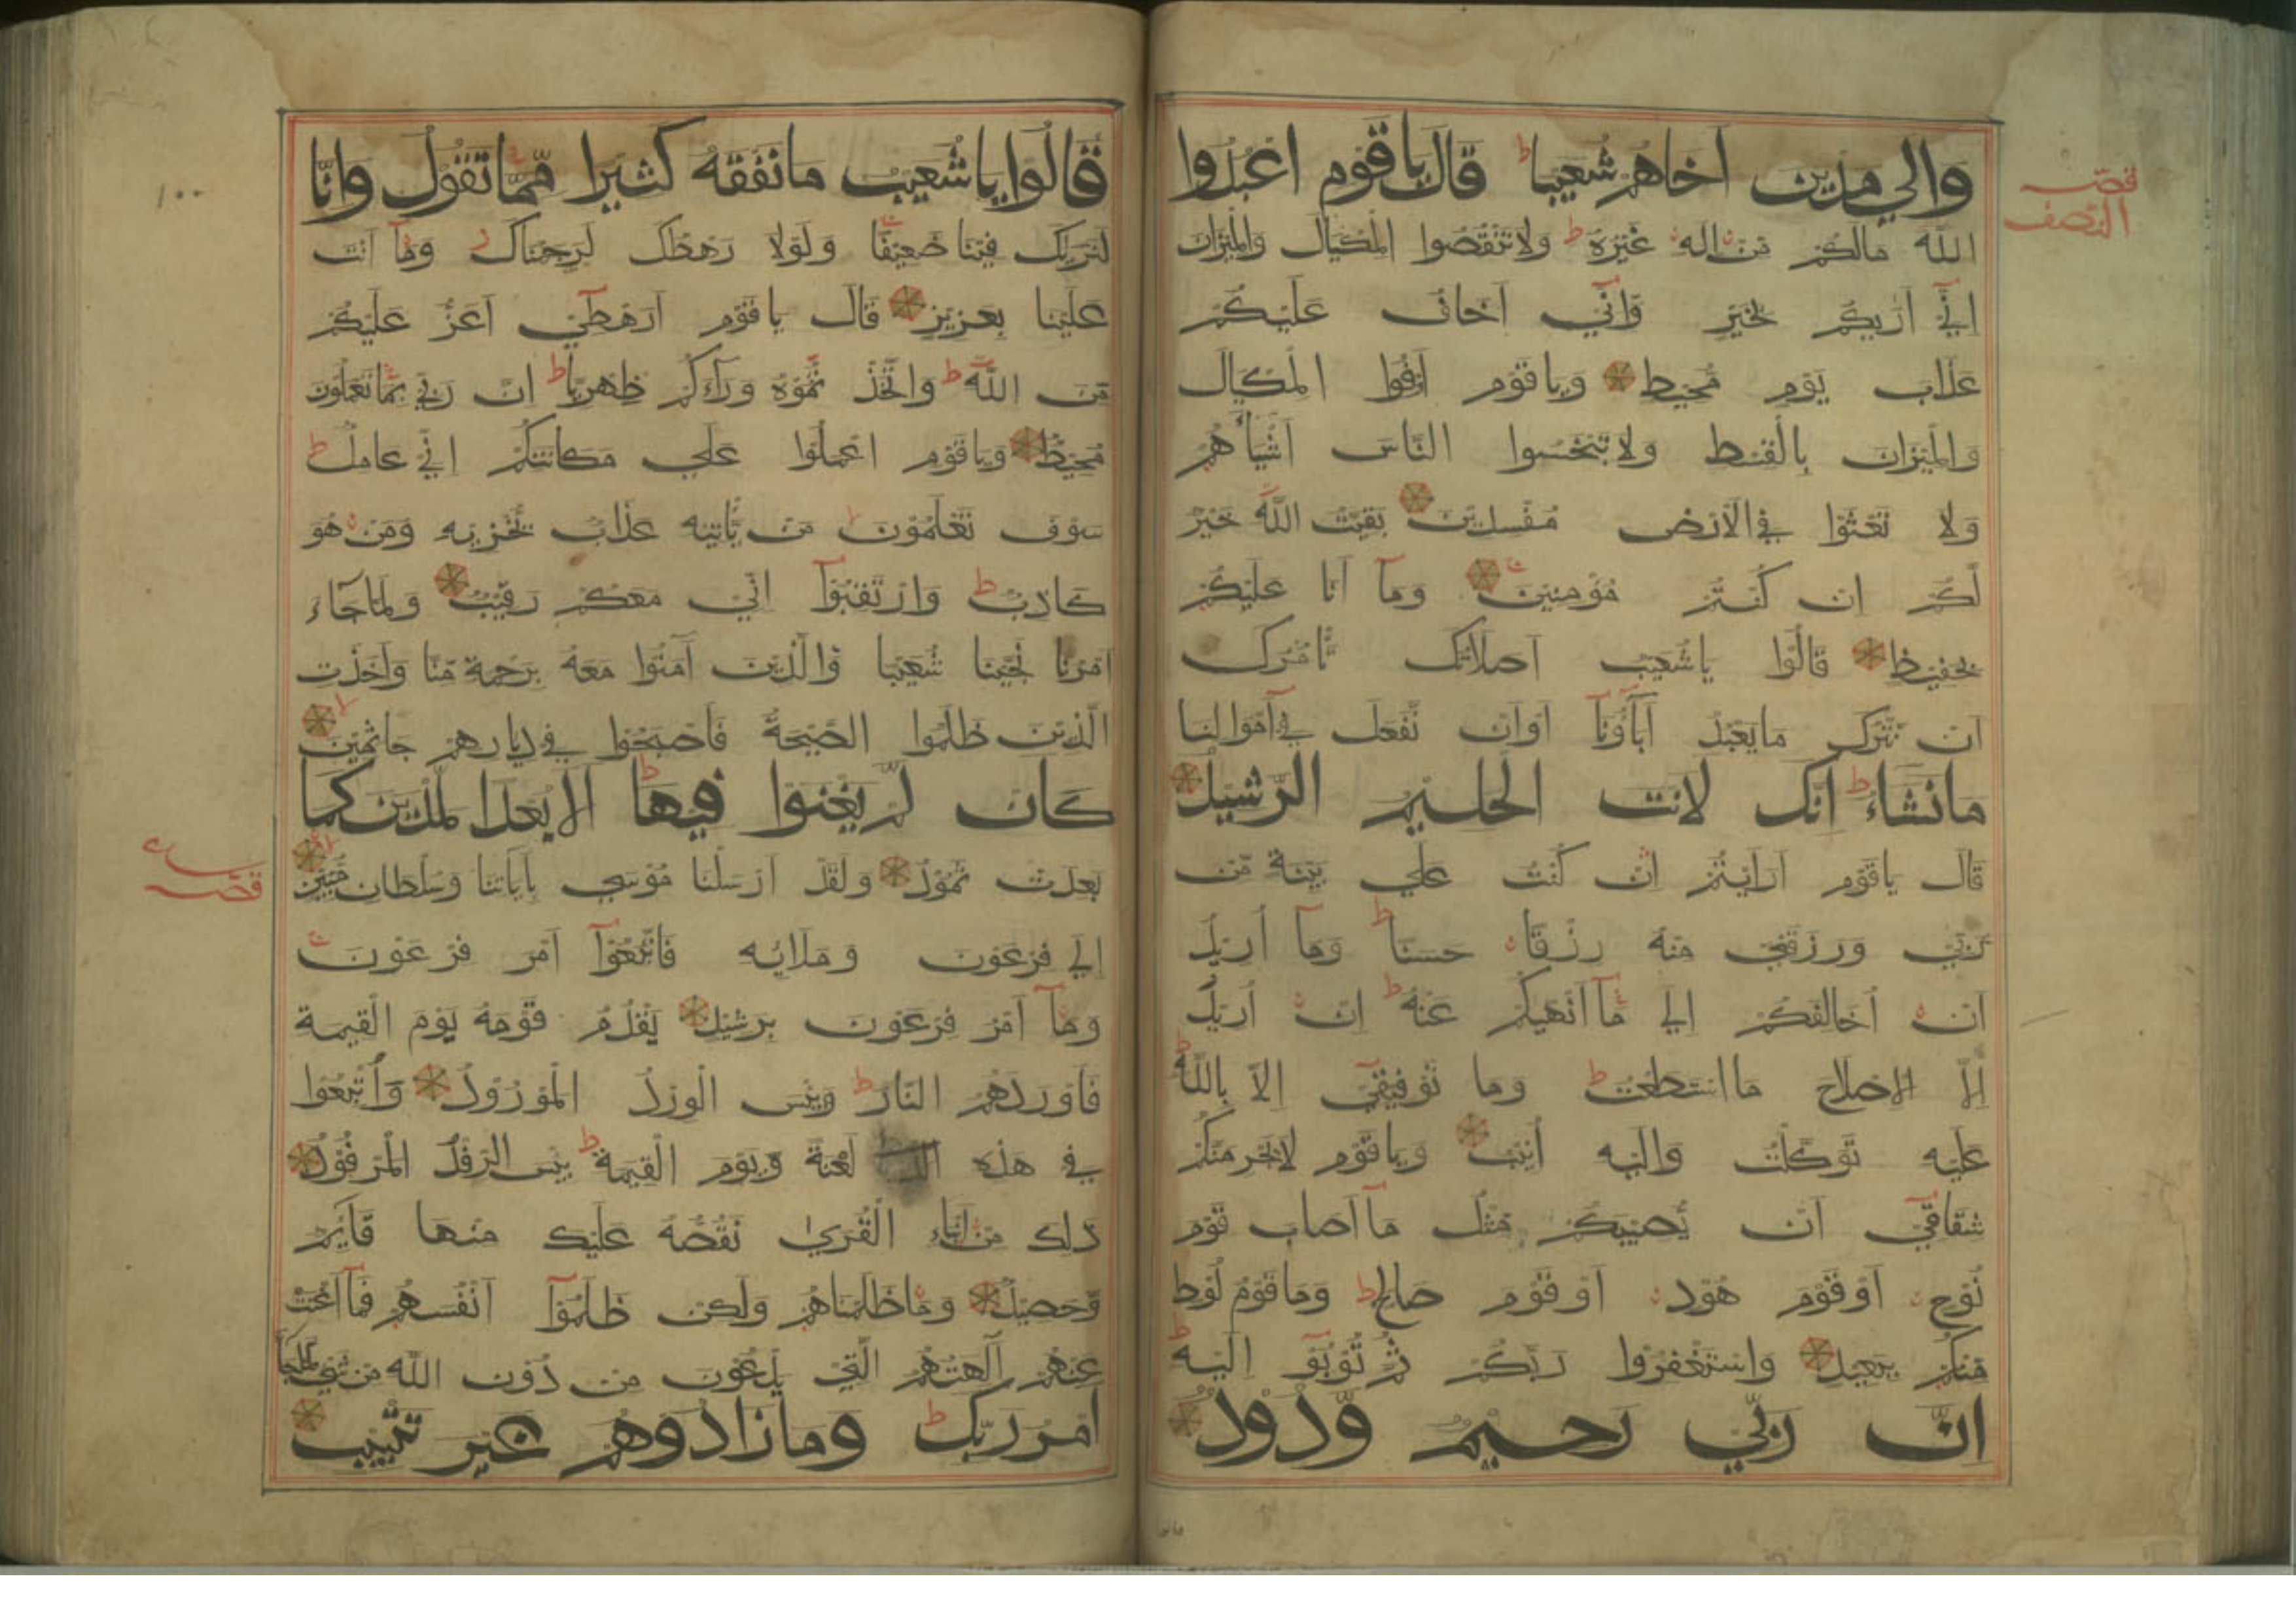 قصه
النصف
وَالي مَدْيَنَ اَخَاهُمْ شُعَيبا ط قَالَ يَاقَوْمِ اعْبُدُوا
اللّٰهَ مَالَكُمْ مِّنْ اِلهٍ غَيْرُهُ ط وَلاتَنْقُصُوا الْمِكْيَالَ وَالْمِيْزَانَ
اِنِّيٓ اَرٰيكُمْ بِخَيْرٍ وَّاِنِّيٓ اَخَافُ عَلَيْكُمْ
عَذَابَ يَوْمٍ مُحِيْطٍ وَيَاقَوْمِ اَوْفُوا الْمِكْيَالَ
وَالْمِيْزَانَ بِالْقِسْطِ وَلاتَبْخَسُوا النَّاسَ اَشْيَآءَهُمْ
وَلا تَعْثَوْا فِي الْاَرْضِ مُفْسِدِيْنَ بَقِيَّتُ اللّٰهِ خَيْرٌ
لَّكُمْ اِنْ كُنْتُمْ مُؤْمِنِيْنَ وَمَآ اَنَا عَلَيْكُمْ
بِحَفِيْظٍ قَالُوْا يَاشُعَيْبُ اَصَلَاتُكَ تَأْمُرُكَ
اَنْ نَّتْرُكَ مَايَعْبُدُ اٰبَآؤُنَآ اَوْاَنْ نَّفْعَلَ فِيٓ اَمْوَالِنَا
مَانَشَاءُ ط اِنَّكَ لَاَنْتَ الْحَلِيْمُ الرَّشِيْدُ
قَالَ يَاقَوْمِ اَرَاَيْتُمْ اِنْ كُنْتُ عَلي بَيِّنَةٍ مِّنْ
رَّبِّيْ وَرَزَقَنِيْ مِنْهُ رِزْقًا حَسَنًا ط وَمَآ اُرِيْدُ
اَنْ اُخَالِفَكُمْ اِلي مَآ اَنْهٰيكُمْ عَنْهُ ط اِنْ اُرِيْدُ
اِلَّا الْاِصْلَاحَ مَا اسْتَطَعْتُ ط وَمَا تَوْفِيْقِيٓ اِلَّا بِاللّٰهِ ط
عَلَيْهِ تَوَكَّلْتُ وَاِلَيْهِ اُنِيْبُ وَيَاقَوْمِ لَايَجْرِمَنَّكُمْ
شِقَاقِيٓ اَنْ يُّصِيْبَكُمْ مِّثْلُ مَآ اَصَابَ قَوْمَ
نُوْحٍ اَوْقَوْمَ هُوْدٍ اَوْقَوْمَ صَالِحٍ ط وَمَا قَوْمُ لُوْطٍ
مِّنْكُمْ بِبَعِيْدٍ وَاسْتَغْفِرُوْا رَبَّكُمْ ثُمَّ تُوْبُوْٓ اِلَيْهِ ط
اِنَّ رَبِّيْ رَحِيْمٌ وَّدُوْدٌ
قالوا
١٠٠
قَالُوْا يَاشُعَيْبُ مَانَفْقَهُ كَثِيْرا مِّمَّا تَقُوْلُ وَاِنَّا
لَنَرٰيكَ فِيْنَا ضَعِيْفًا وَلَوْلَا رَهْطُكَ لَرَجَمْنَاكَ وَمَآ اَنْتَ
عَلَيْنَا بِعَزِيْزٍ قَالَ يَاقَوْمِ اَرَهْطِيٓ اَعَزُّ عَلَيْكُمْ
مِّنَ اللّٰهِ ط وَاتَّخَذْتُمُوْهُ وَرَآءَكُمْ ظِهْرِيًّا ط اِنَّ رَبِّيْ بِمَا تَعْمَلُوْنَ
مُحِيْطٌ وَيَاقَوْمِ اعْمَلُوْا عَلي مَكَانَتِكُمْ اِنِّيْ عَامِلٌ ط
سَوْفَ تَعْلَمُوْنَ مَنْ يَّأْتِيْهِ عَذَابٌ يُّخْزِيْهِ وَمَنْ هُوَ
كَاذِبٌ ط وَارْتَقِبُوْٓا اِنِّيْ مَعَكُمْ رَقِيْبٌ وَلَمَّا جَآءَ
اَمْرُنَا نَجَّيْنَا شُعَيْبًا وَّالَّذِيْنَ اٰمَنُوْا مَعَهُ بِرَحْمَةٍ مِّنَّا وَاَخَذَتِ
الَّذِيْنَ ظَلَمُوا الصَّيْحَةُ فَاَصْبَحُوْا فِيْ دِيَارِهِمْ جَاثِمِيْنَ
كَاَنْ لَّمْ يَغْنَوْا فِيْهَا ط اَلَا بُعْدًا لِّمَدْيَنَ كَمَا
بَعِدَتْ ثَمُوْدُ وَلَقَدْ اَرْسَلْنَا مُوْسي بِاٰيَاتِنَا وَسُلْطَانٍ مُّبِيْنٍ
قصه
اِلي فِرْعَوْنَ وَمَلَائِهِ فَاتَّبَعُوْٓا اَمْرَ فِرْعَوْنَ
وَمَآ اَمْرُ فِرْعَوْنَ بِرَشِيْدٍ يَقْدُمُ قَوْمَهُ يَوْمَ الْقِيٰمَةِ
فَاَوْرَدَهُمُ النَّارَ ط وَبِئْسَ الْوِرْدُ الْمَوْرُوْدُ وَاُتْبِعُوْا
فِيْ هٰذِهِ لَعْنَةً وَّيَوْمَ الْقِيٰمَةِ ط بِئْسَ الرِّفْدُ الْمَرْفُوْدُ
ذٰلِكَ مِنْ اَنْبَآءِ الْقُرٰى نَقُصُّهُ عَلَيْكَ مِنْهَا قَآئِمٌ
وَّحَصِيْدٌ وَمَا ظَلَمْنَاهُمْ وَلٰكِنْ ظَلَمُوْٓا اَنْفُسَهُمْ فَمَآ اَغْنَتْ
عَنْهُمْ اٰلِهَتُهُمُ الَّتِيْ يَدْعُوْنَ مِنْ دُوْنِ اللّٰهِ مِنْ شَيْءٍ لَّمَّا جَآءَ
اَمْرُ رَبِّكَ ط وَمَا زَادُوْهُمْ غَيْرَ تَتْبِيْبٍ